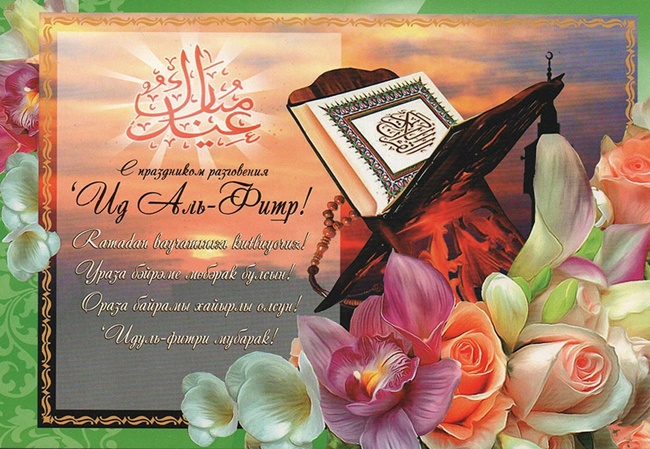 عيد مبارك
С праздником разговения
‘Ид Аль-Фитр!
Ramadan bayramınızı kutluyoruz!
Ураза бәйрәме мөбарак булсын!
Ораза байрамы хайырлы олсун!
‘Идуль-фитри мубарак!
القرآن الكريم